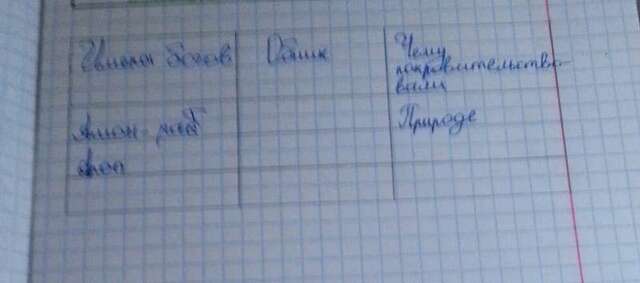 Имена богов
Облик
Чему
покровительство-
вали
Амон-
Природе